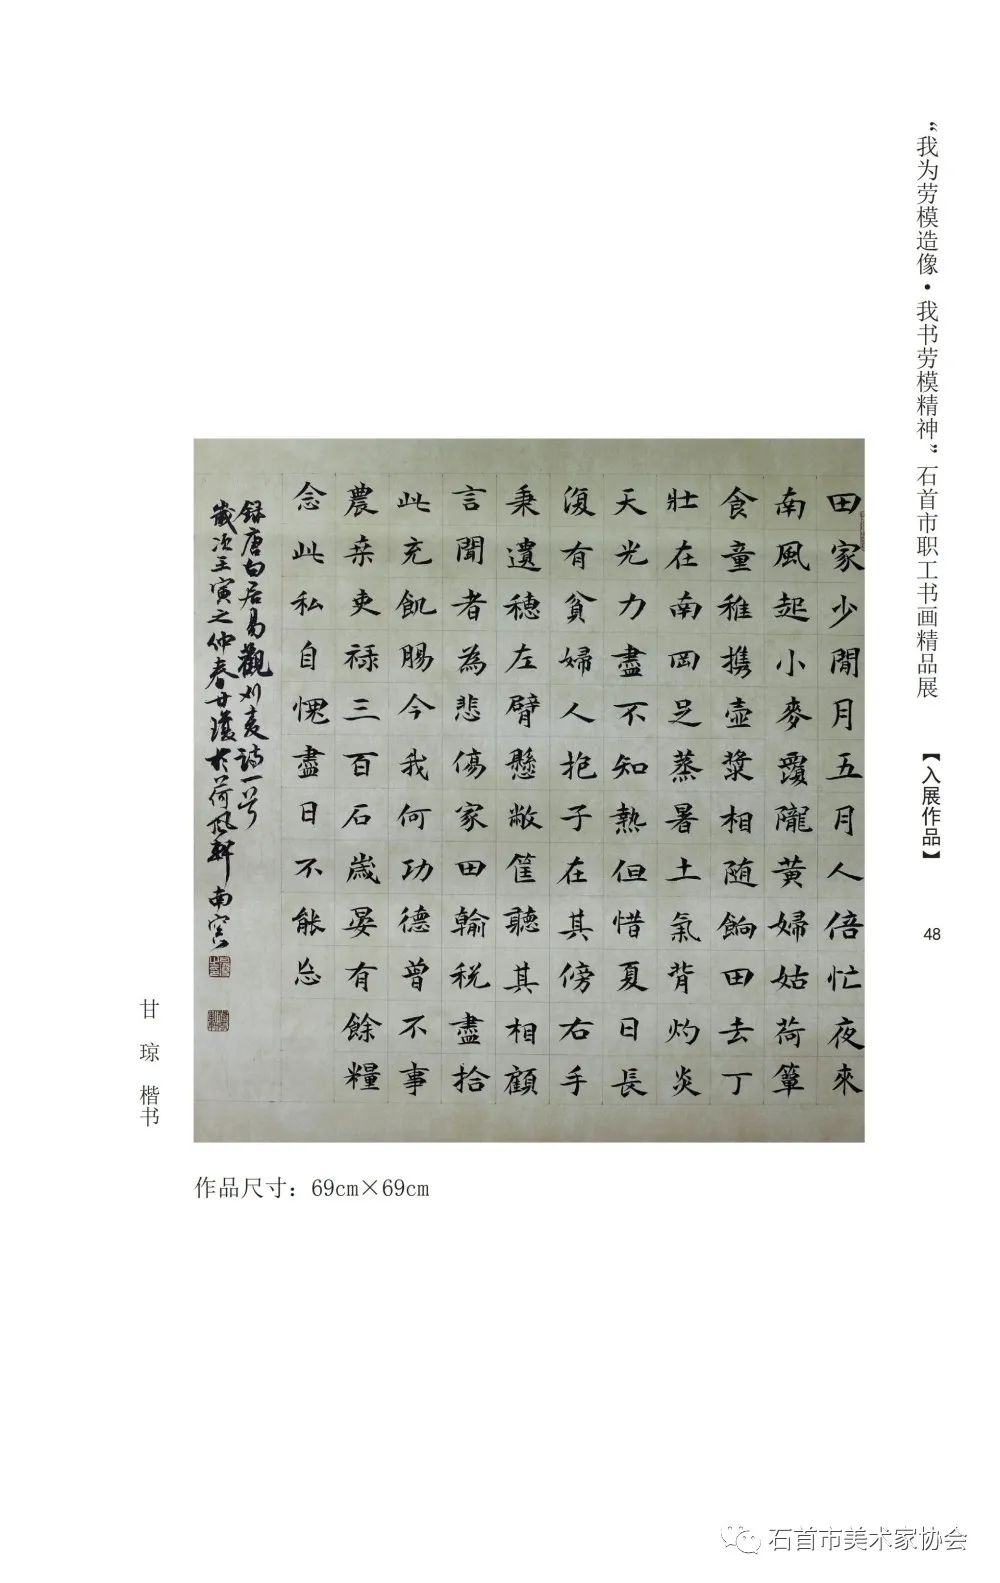 “我为劳模造像·我书劳模精神”石首市职工书画精品展
【入展作品】
48
田家少閒月五月人倍忙夜來
南風起小麥覆隴黃婦姑荷簞
食童稚携壺漿相随餉田去丁
壯在南岡足蒸暑土氣背灼炎
天光力盡不知熱但惜夏日長
復有貧婦人抱子在其傍右手
秉遺穗左臂懸敝筐聽其相顧
言聞者為悲傷家田輸税盡拾
此充飢賜今我何功德曾不事
農桒吏禄三百石歲晏有餘糧
念此私自愧盡日不能忘
録唐白居易觀刈麦詩一首
歲次壬寅之仲春甘瓊於荷風軒南窓
甘琼 楷书
作品尺寸：69cm×69cm
石首市美术家协会